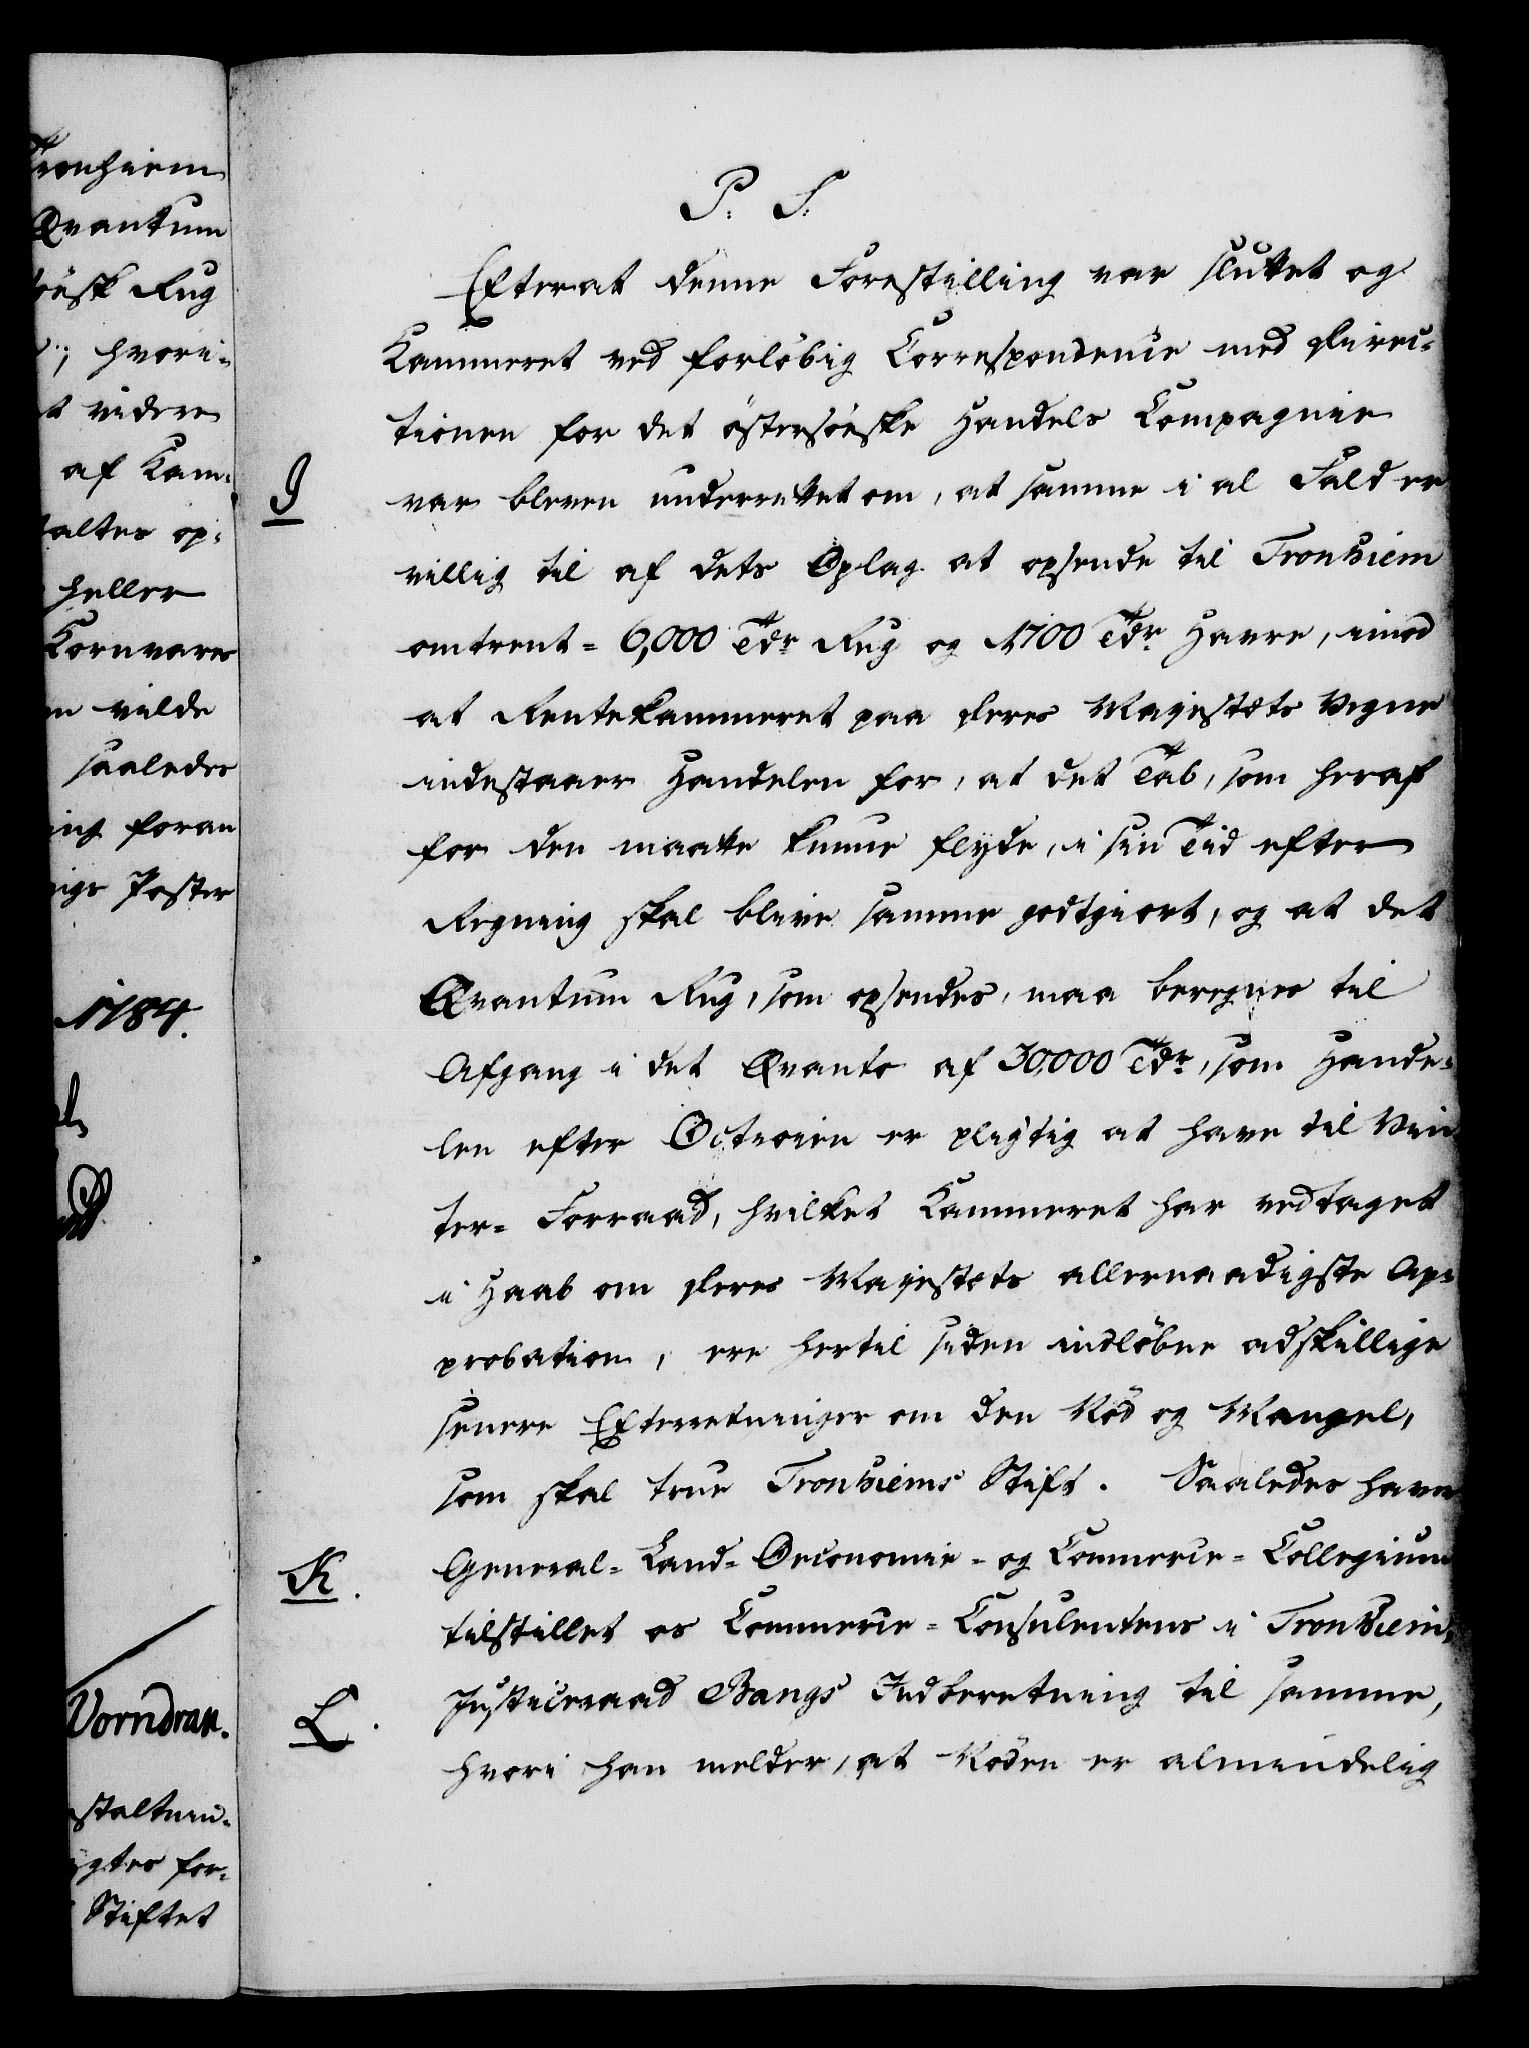 P. S.
Efterat denne Forestilling var sluttet og
Kammeret ved forlöbig Correspondence med Direc-
tionen for det östersöeske Handels Compagnie
I
var bleven underrettet om, at samme i al Fald er
villig til af dets Oplag at opsende til Tronhiem
omtrent = 6,000 Tdr Rug og 1700 Tdr Havre, imod
at Rentekammeret paa Deres Majestæts Vegne
indestaaer Handelen for, at det Tab, som heraf
for den maatte kunne flyde, i sin Tid efter
Regning skal blive samme godtgiort, og at det
Qvantum Rug, som opsendes, maa beregnes til
Afgang i det Qvanto af 30,000 Tdr, som Hande-
len efter Octroien er pligtig at have til Vin-
ter= Forraad, hvilket Kammeret har vedtaget
i Haab om Deres Majestæts allernaadigste Ap-
probation, ere hertil siden indlöbne adskillige
senere Efterretninger om den Nöd og Mangel,
som skal true Tronhiems Stift. Saaledes have
K.
General= Land= Oeconomie= og Commerce= Collegium
tilstillet os Commerce= Consulentens i Tronhiem,
L.
Justiceraad Bangs Indberetning til samme,
hvori han melder, at Nöden er almindelig
Tronhiem
Qvantum
öesk Rug
; hvori-
t videre
af Kam-
altes op-
heller
Kornvares
n vilde
saaledes
ing foran
ige Poster
1784.
Vorndran.
staltnin-
gtes for-
Stiftet